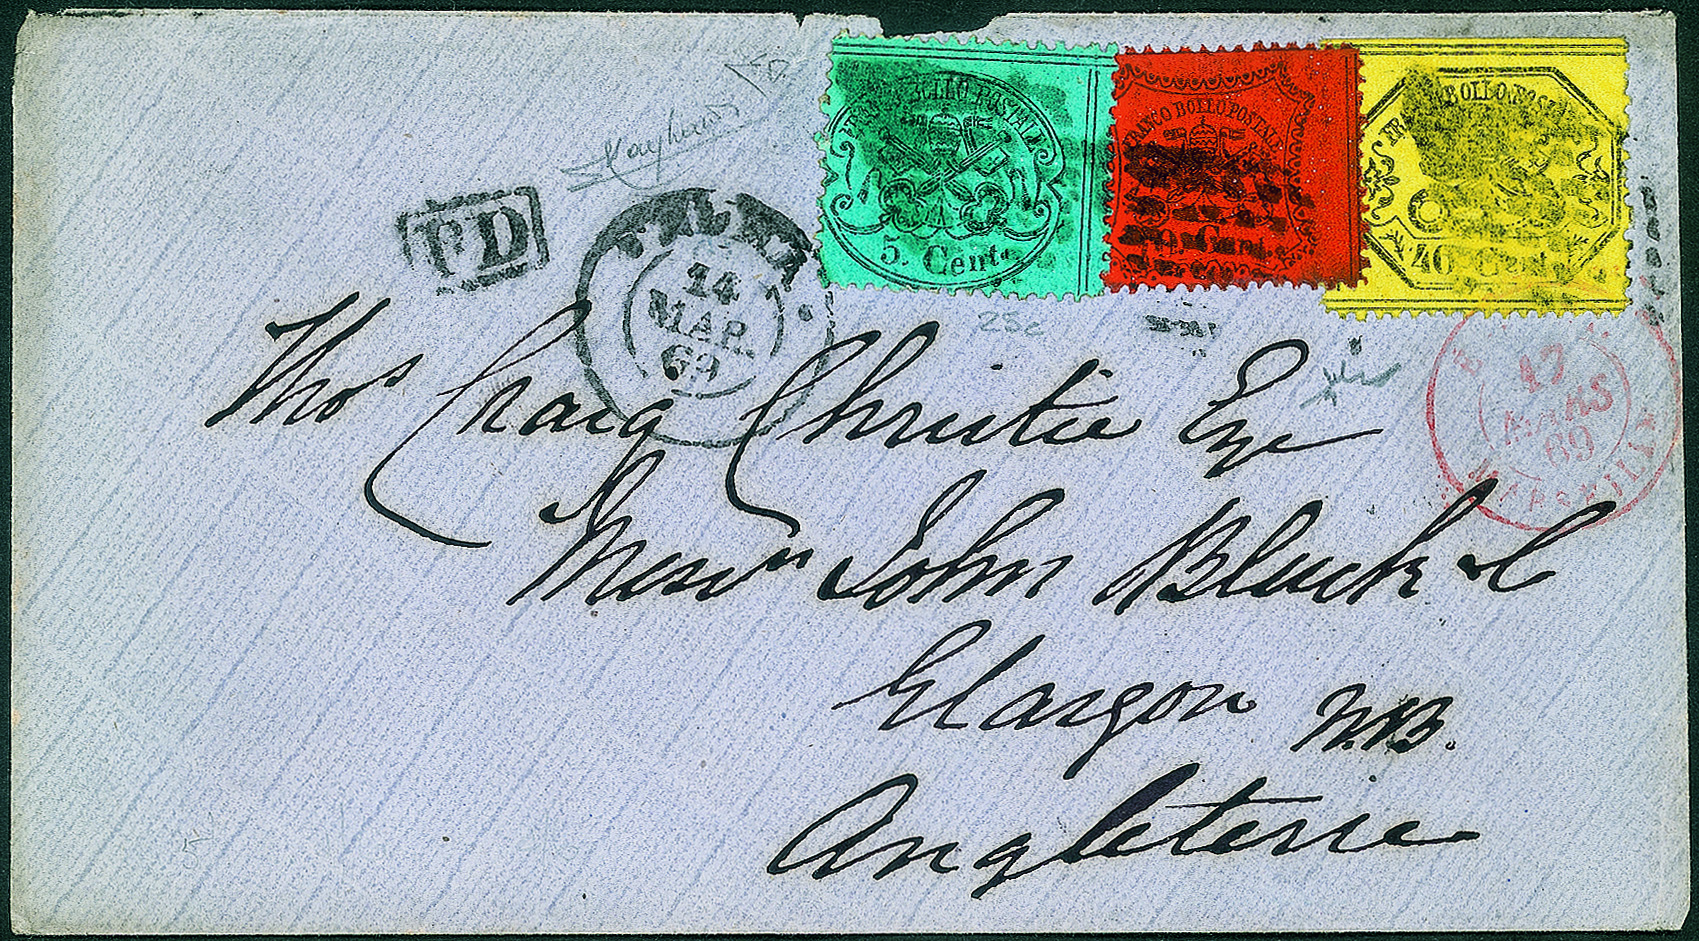 PD
ROMA
14
MAR.
69
FRANCO BOLLO POSTALE
5. Cent.
FRANCO BOLLO POSTALE
Cent.
FRANCO BOLLO POSTALE
40 Cent.
25c
17
MARS
69
MARSEILLE
Thos Craig Christie Esqe
Messrs John Black & C
Glasgow N.B.
Angleterre